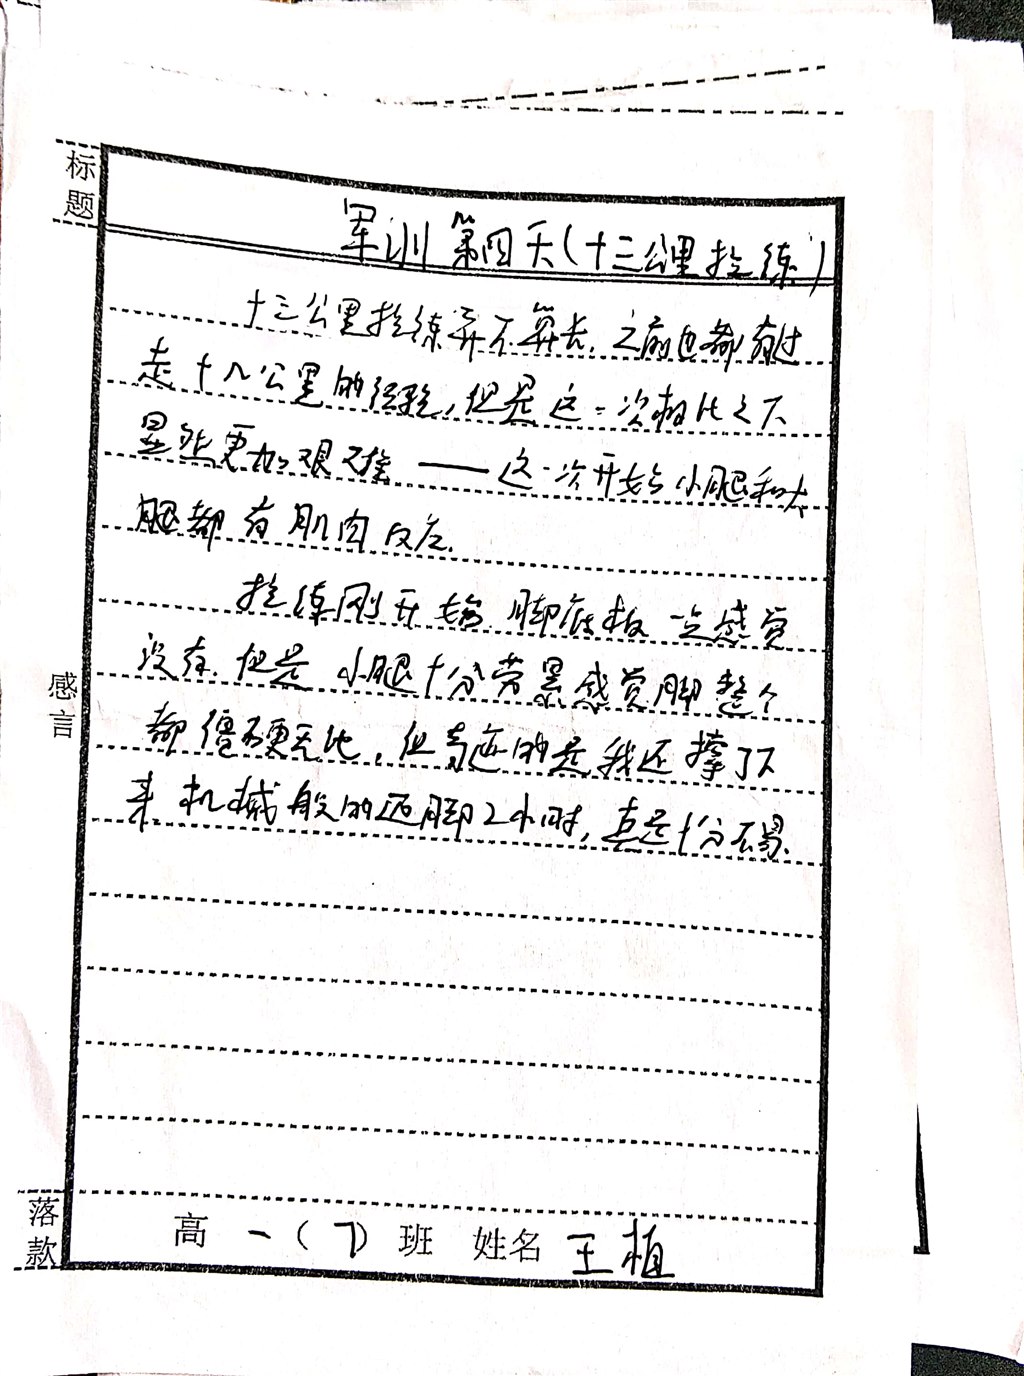 标题
军训第四天(十三公里拉练)
十三公里拉练并不算长,之前也都有过
走十几公里的经验,但是这一次相比之下
显然更加艰难——这一次开始小腿和大
腿都有肌肉反应.
拉练刚开始,脚底板一定感觉
没有.但是小腿十分劳累感觉脚整个
都僵硬无比,但奇迹的是我还撑了下
来.机械般的迈脚2小时,真是十分不易.
感言
落款
高一(7)班 姓名 王植